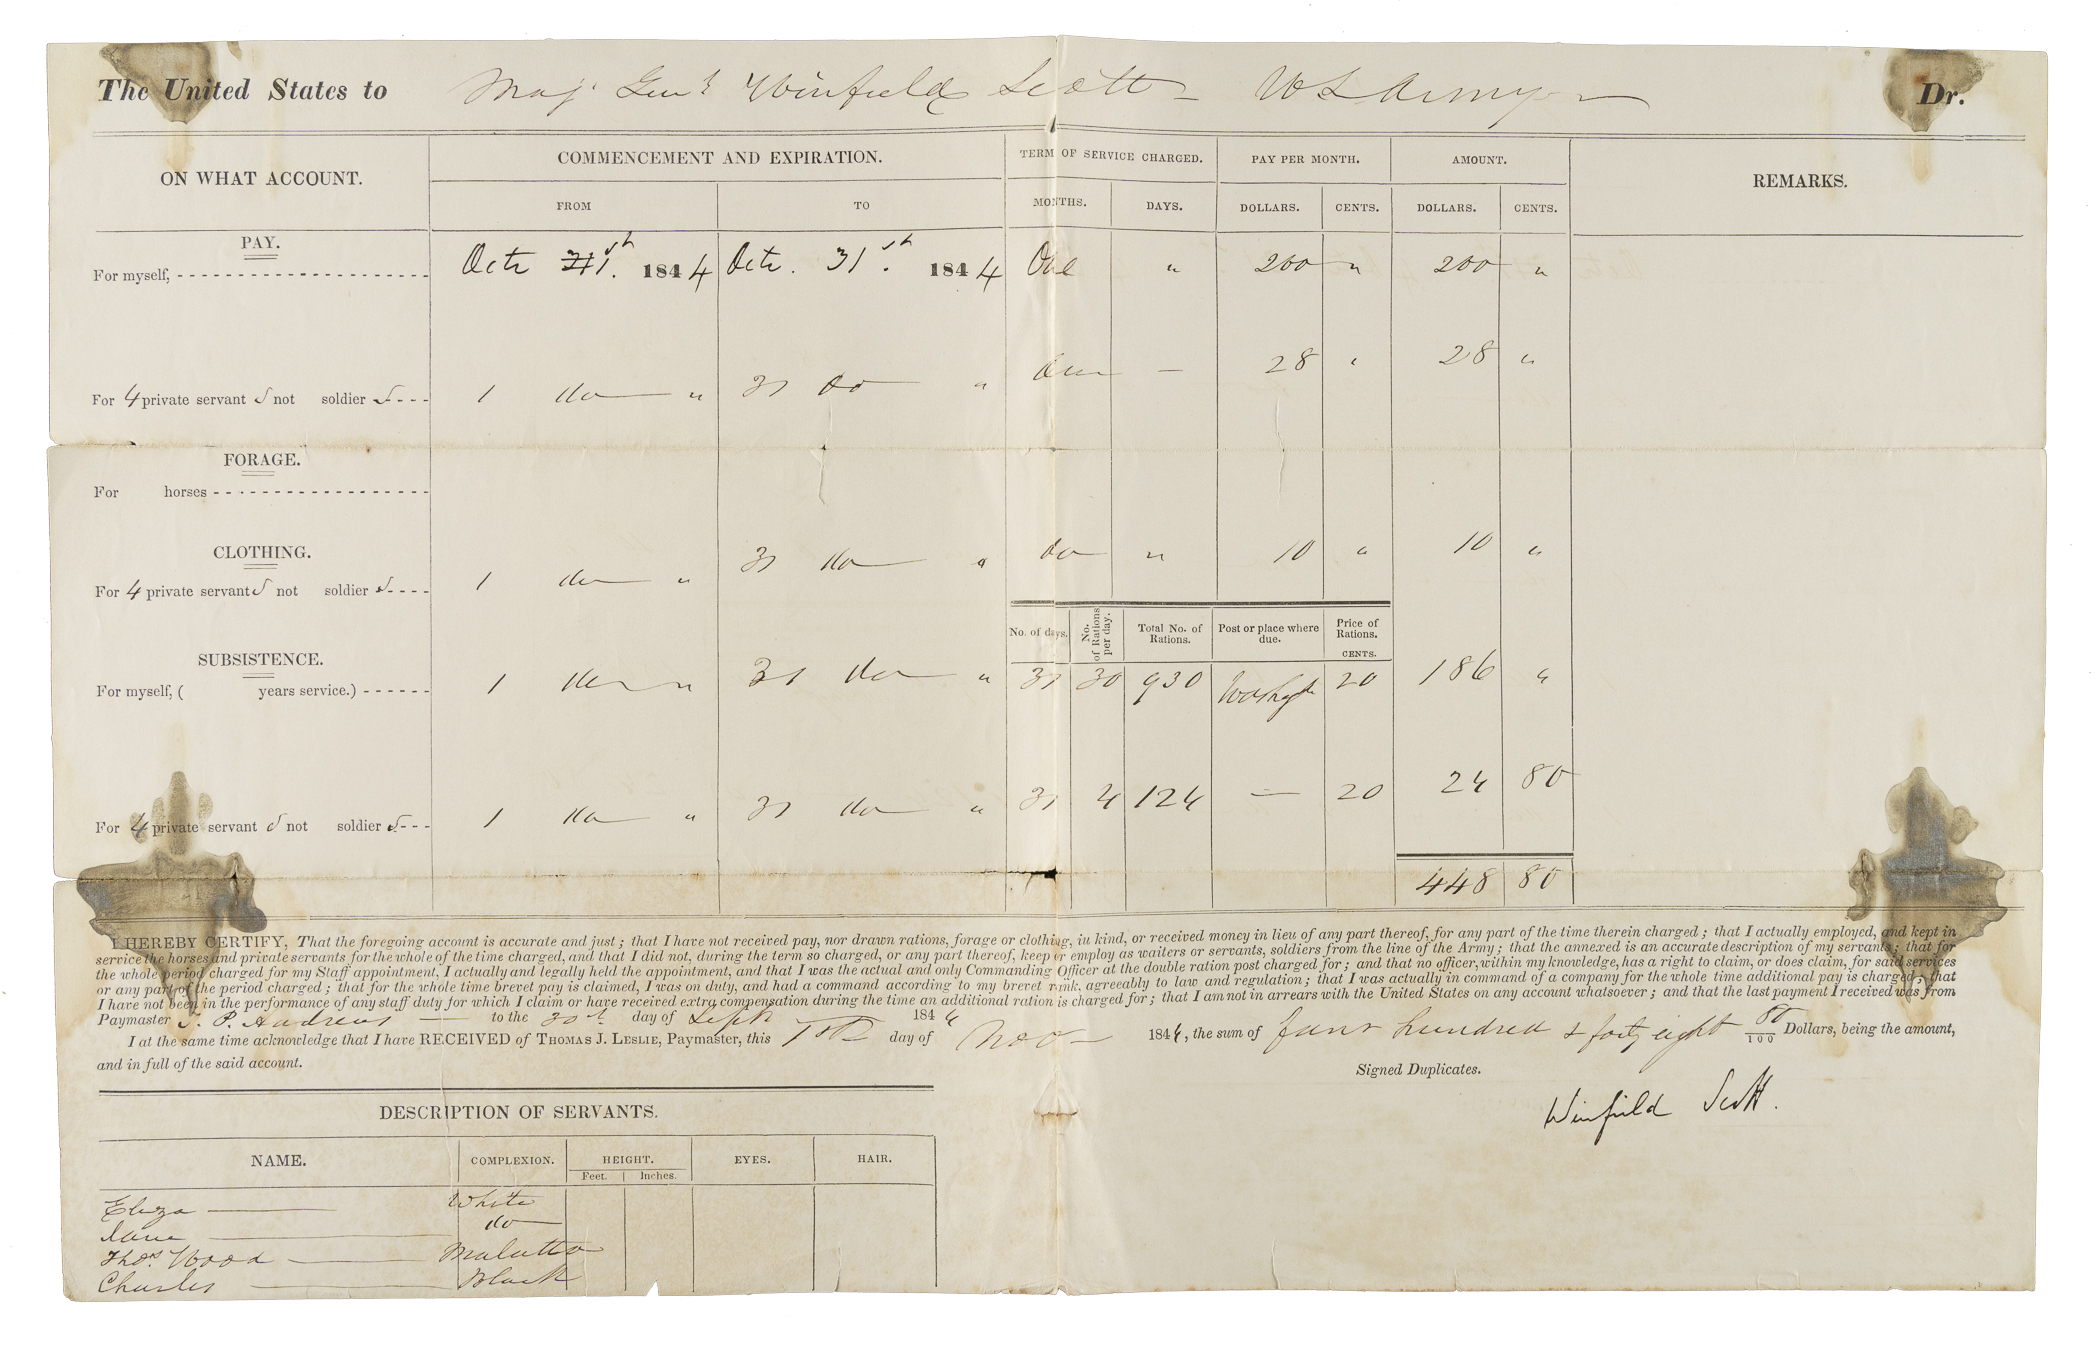 The United States to Maj. Genl Winfield Scott - U S Army Dr.
ON WHAT ACCOUNT. COMMENCEMENT AND EXPIRATION. TERM OF SERVICE CHARGED. PAY PER MONTH. AMOUNT. REMARKS.
FROM TO MONTHS. DAYS. DOLLARS. CENTS. DOLLARS. CENTS.
PAY.
For myself, Octr 1st. 1844 Octr. 31st. 1844 One " 200 " 200 "
For 4 private servants not soldiers 1 do " 31 do " One — 28 " 28 "
FORAGE.
For horses
CLOTHING.
For 4 private servants not soldiers 1 do " 31 do " do " 10 " 10 "
No. of days. No. of Rations per day. Total No. of Rations. Post or place where due. Price of Rations. CENTS.
SUBSISTENCE.
For myself, ( years service.) 1 do " 31 do " 31 30 930 Washgtn 20 186 "
For 4 private servants not soldiers 1 do " 31 do " 31 4 124 — 20 24 80
448 80
I HEREBY CERTIFY, That the foregoing account is accurate and just; that I have not received pay, nor drawn rations, forage or clothing, in kind, or received money in lieu of any part thereof, for any part of the time therein charged; that I actually employed, and kept in
service the horses and private servants for the whole of the time charged, and that I did not, during the term so charged, or any part thereof, keep or employ as waiters or servants, soldiers from the line of the Army; that the annexed is an accurate description of my servants; that for
the whole period charged for my Staff appointment, I actually and legally held the appointment, and that I was the actual and only Commanding Officer at the double ration post charged for; and that no officer, within my knowledge, has a right to claim, or does claim, for said services
or any part of the period charged; that for the whole time brevet pay is claimed, I was on duty, and had a command according to my brevet rank, agreeably to law and regulation; that I was actually in command of a company for the whole time additional pay is charged; that
I have not been in the performance of any staff duty for which I claim or have received extra compensation during the time an additional ration is charged for; that I am not in arrears with the United States on any account whatsoever; and that the last payment I received was from
Paymaster T. P. Andrews — to the 30th day of Sept 1844
I at the same time acknowledge that I have RECEIVED of THOMAS J. LESLIE, Paymaster, this 1st day of Nov 1844, the sum of four hundred & forty eight 80/100 Dollars, being the amount,
and in full of the said account.
Signed Duplicates.
Winfield Scott.
DESCRIPTION OF SERVANTS.
NAME. COMPLEXION. HEIGHT. EYES. HAIR.
Feet. Inches.
Eliza — White
Jane — do
Thos. Wood — Mulatto
Charles — Black